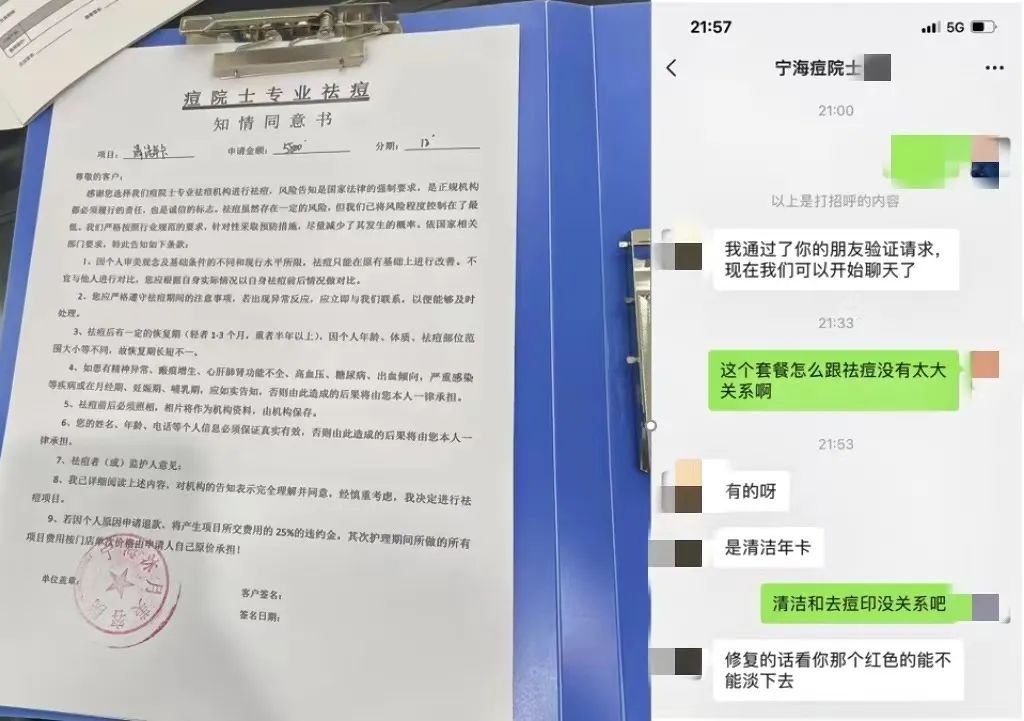 痘院士专业祛痘
知情同意书
项目： 清洁卡 申请金额： 5800 分期： 12
尊敬的客户：
感谢您选择我们痘院士专业祛痘机构进行祛痘，风险告知是国家法律的强制要求，是正规机构
都必须履行的责任，也是诚信的标志。祛痘虽然存在一定的风险，但我们已将风险程度控制在了最
低。我们严格按照行业规范的要求，针对性采取预防措施，尽量减少了其发生的概率。依国家相关
部门要求，特此告知如下条款：
1、因个人审美观念及基础条件的不同和现行水平所限，祛痘只能在原有基础上进行改善。不
宜与他人进行对比，您应根据自身实际情况以自身祛痘前后情况做对比。
2、您应严格遵守祛痘期间的注意事项，若出现异常反应，应立即与我们联系，以便能够及时
处理。
3、祛痘后有一定的恢复期（轻者1-3个月，重者半年以上），因个人年龄、体质、祛痘部位范
围大小等不同，故恢复期长短不一、
4、如患有精神异常、瘢痕增生、心肝肺肾功能不全、高血压、糖尿病、出血倾向，严重感染
等疾病或在月经期、妊娠期、哺乳期，应如实告知，否则由此造成的后果将由您本人一律承担。
5、祛痘前后必须照相，相片将作为机构资料，由机构保存。
6、您的姓名、年龄、电话等个人信息必须保证真实有效，否则由此造成的后果将由您本人一
律承担。
7、祛痘者（或）监护人意见：
8、我已详细阅读上述内容，对机构的告知表示完全理解并同意，经慎重考虑，我决定进行祛
痘项目。
9、若因个人原因申请退款、将产生项目所交费用的25%的违约金，其次护理期间所做的所有
项目费用按门店单次价格由申请人自己原价承担！
单位盖章：
客户签名：
签名日期：
21:57
5G
宁海痘院士
21:00
以上是打招呼的内容
我通过了你的朋友验证请求，
现在我们可以开始聊天了
21:33
这个套餐怎么跟祛痘没有太大
关系啊
21:53
有的呀
是清洁年卡
清洁和去痘印没关系吧
修复的话看你那个红色的能不
能淡下去